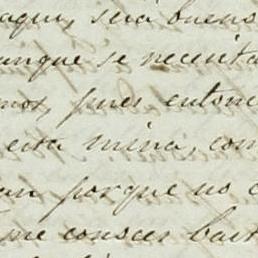 aqui, será buens
unque se necesita
mos, pues entonc
esta mina, com
an porque no c
me conoces bast